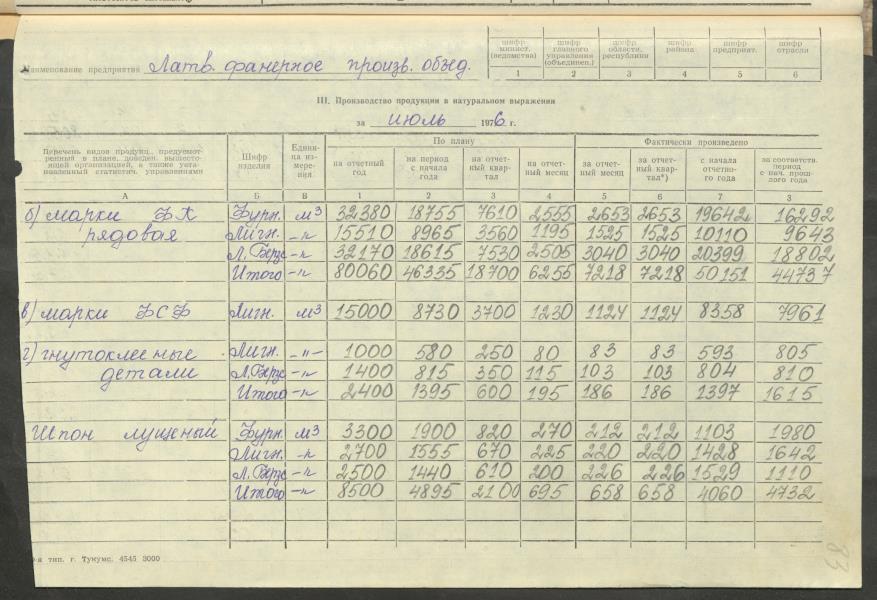 Наименование предприятия Латв. фанерное произв. объед.
шифр минист. (ведомства) | шифр главного управления (объединен.) | шифр области, республики | шифр района | шифр предприят. | шифр отрасли
1 2 3 4 5 6
III. Производство продукции в натуральном выражении
за июль 1976 г.
Перечень видов продукц., предусмотренный в плане, доведен. вышестоящей организацией, а также установленный статистич. управлениями | Шифр изделия | Единица измерения | По плану | Фактически произведено
на отчетный год | на период с начала года | на отчетный квартал | на отчетный месяц | за отчетный месяц | за отчетный квартал*) | с начала отчетного года | за соответств. период с нач. прошлого года
А Б В 1 2 3 4 5 6 7 8
б) марки ФК Фурн. м3 32380 18755 7610 2555 2653 2653 19642 16292
рядовая Лигн. –„ 15510 8965 3560 1195 1525 1525 10110 9643
Л.Берзс –„ 32170 18615 7530 2505 3040 3040 20399 18802
Итого –„ 80060 46335 18700 6255 7218 7218 50151 44737
в) марки ФСФ Лигн. м3 15000 8730 3700 1230 1124 1124 8358 7961
г) гнутоклееные Лигн. –„– 1000 580 250 80 83 83 593 805
детали Л.Берзс –„ 1400 815 350 115 103 103 804 810
Итого –„ 2400 1395 600 195 186 186 1397 1615
Шпон лущеный Фурн. м3 3300 1900 820 270 212 212 1103 1980
Лигн. –„ 2700 1555 670 225 220 220 1428 1642
Л.Берзс –„ 2500 1440 610 200 226 226 1529 1110
Итого –„ 8500 4895 2100 695 658 658 4060 4732
тип. г. Тукумс. 4545 3000
83